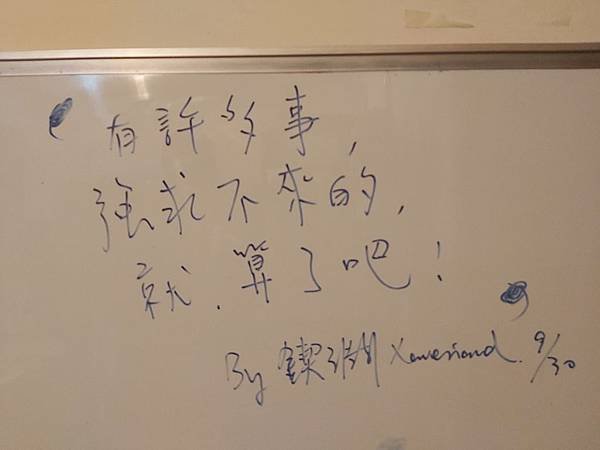 有許多事,
強求不來的,
就.算了吧!
By 鍥 9/30